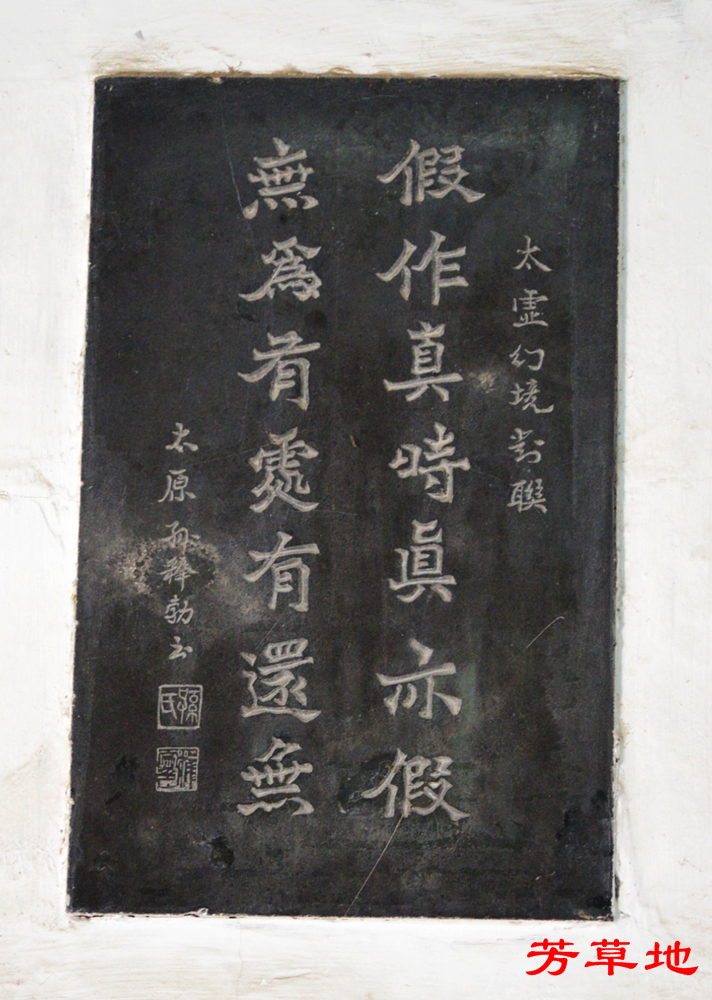 太虛幻境對聯
假作真時真亦假
無爲有處有還無
太原孫釋勃書
孫氏
芳草地